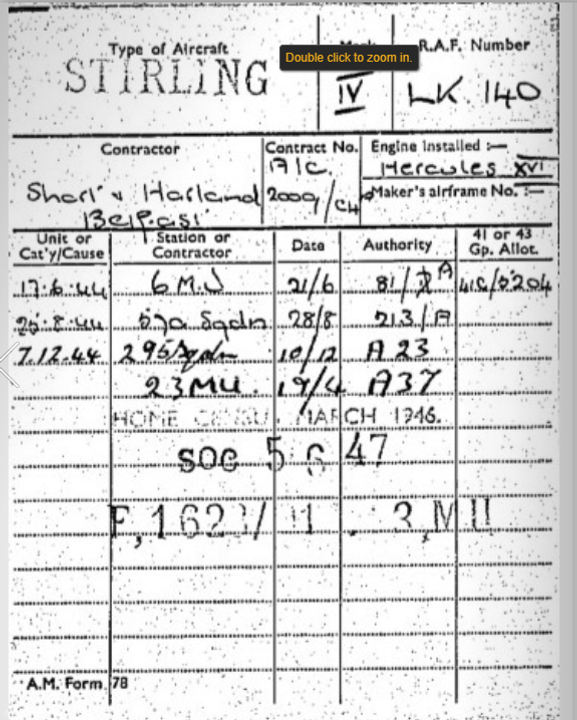 Type of Aircraft
STIRLING
Mark
IV
Double click to zoom in.
R.A.F. Number
LK 140
Contractor
Short & Harland
Belfast
Contract No.
A/C.
2009/C4
Engine installed :—
Hercules XVI
Maker's airframe No. :—
Unit or
Cat'y/Cause
Station or
Contractor
Date
Authority
41 or 43
Gp. Allot.
17.6.44 6 M.U 21/6 81/ A 41G/
25.8.44 570 Sqdn 28/8 213/A
7.12.44 295 Sqdn 10/12 A 23
23 MU. 19/4 A37
HOME CENSUS MARCH 1946.
SOC 5 6 47
3 MU
A.M. Form 78